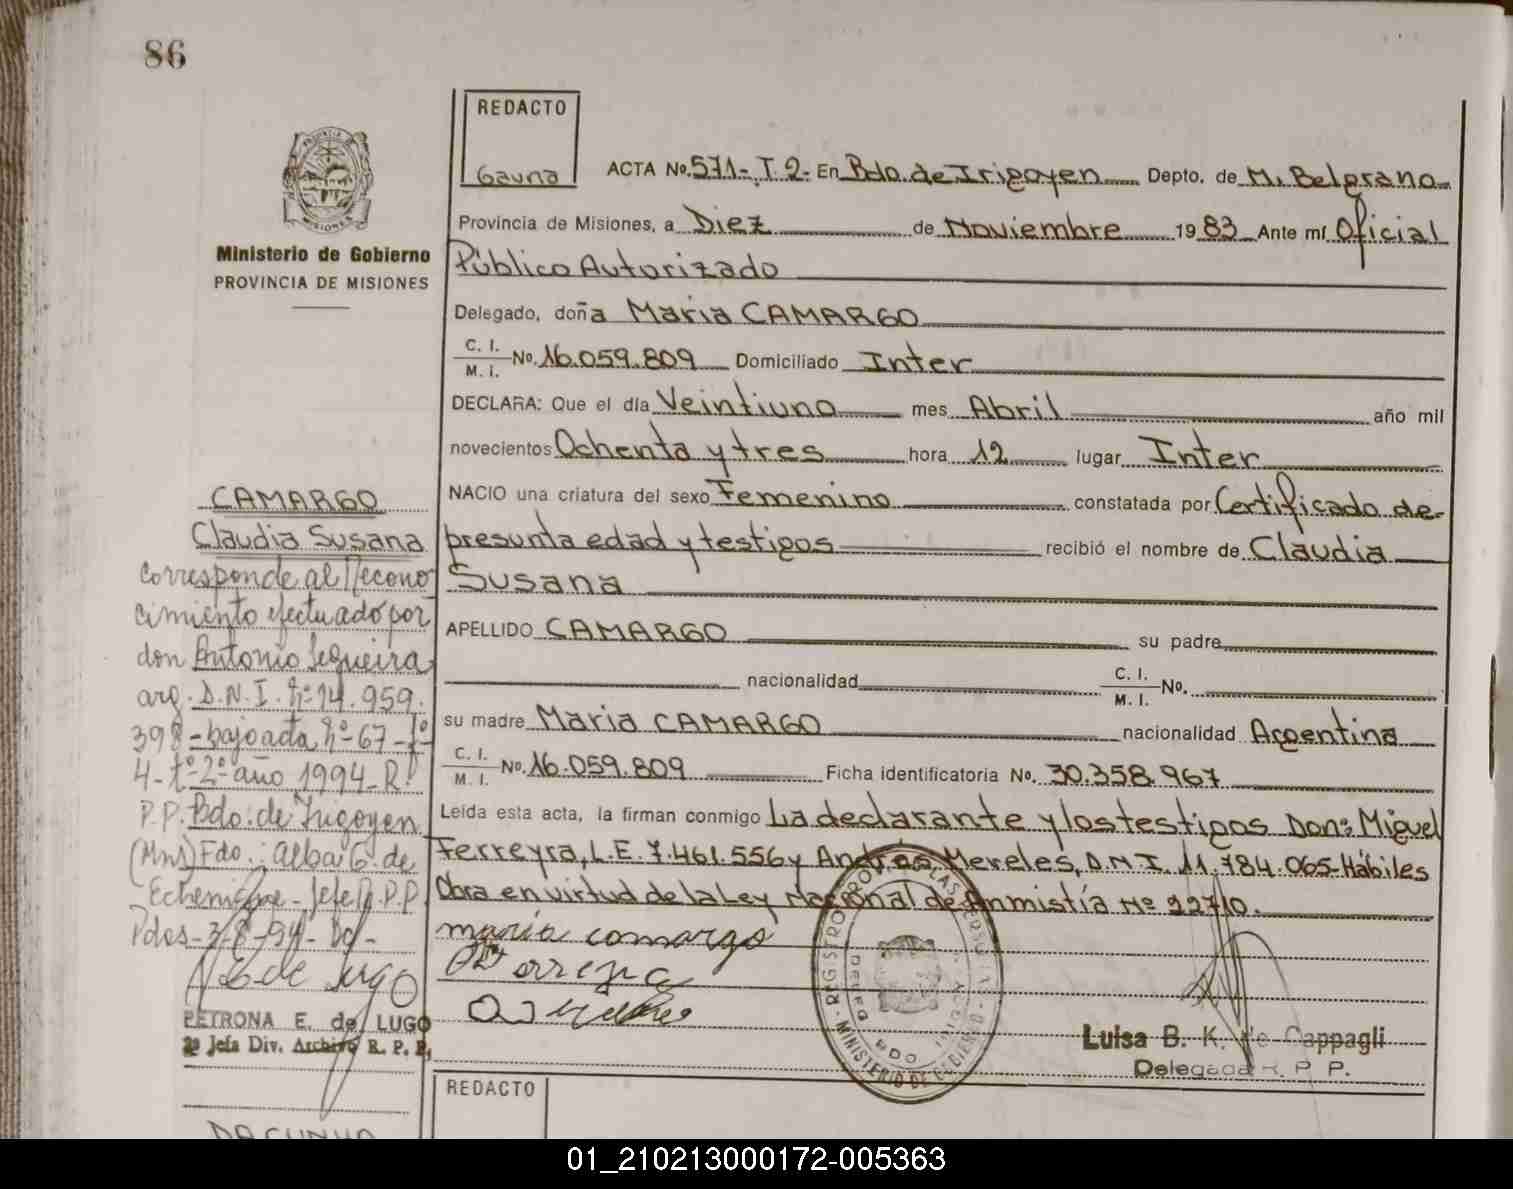 86
REDACTO
Gauna
ACTA No. 571-T.2- En Bdo. de Irigoyen Depto. de M. Belgrano
Provincia de Misiones, a Diez de Noviembre 1983 Ante mí Oficial
Público Autorizado
Delegado, doña Maria CAMARGO
C. I.
M. I. No. 16.059.809 Domiciliado Inter
DECLARA: Que el día Veintiuno mes Abril año mil
novecientos Ochenta y tres hora 12 lugar Inter
NACIO una criatura del sexo Femenino constatada por Certificado de
presunta edad y testigos recibió el nombre de Claudia
Susana
APELLIDO CAMARGO su padre
nacionalidad C. I.
M. I. No.
su madre Maria CAMARGO nacionalidad Argentina
C. I.
M. I. No. 16.059.809 Ficha identificatoria No. 30.358.967
Leída esta acta, la firman conmigo La declarante y los testigos Don: Miguel
Ferreyra, L.E. 7.461.556 y Andrés Mereles, D.N.I. 11.784.065-Hábiles
Obra en virtud de la Ley Nacional de Anmistía Nº 22710.
maria comargo
Luisa B. K. de Cappagli
Delegada R. P. P.
MINISTERIO DE GOBIERNO
PROVINCIA DE
MISIONES
Ministerio de Gobierno
PROVINCIA DE MISIONES
CAMARGO
Claudia Susana
corresponde al Recono
cimiento efectuado por
don Antonio Sequeira
arg. D.N.I. Nº 14.959.
398-bajo acta Nº 67-fº
4-tº 2º año 1994-R.
P.P. Bdo. de Irigoyen
(Mns) Fdo.: Alba G. de
Echenique-Jefe R.P.P.
Pdas-3/8-94-
PETRONA E. de LUGO
2ª Jefa Div. Archivo R. P. P.
REDACTO
DA CUNHA
01_210213000172-005363